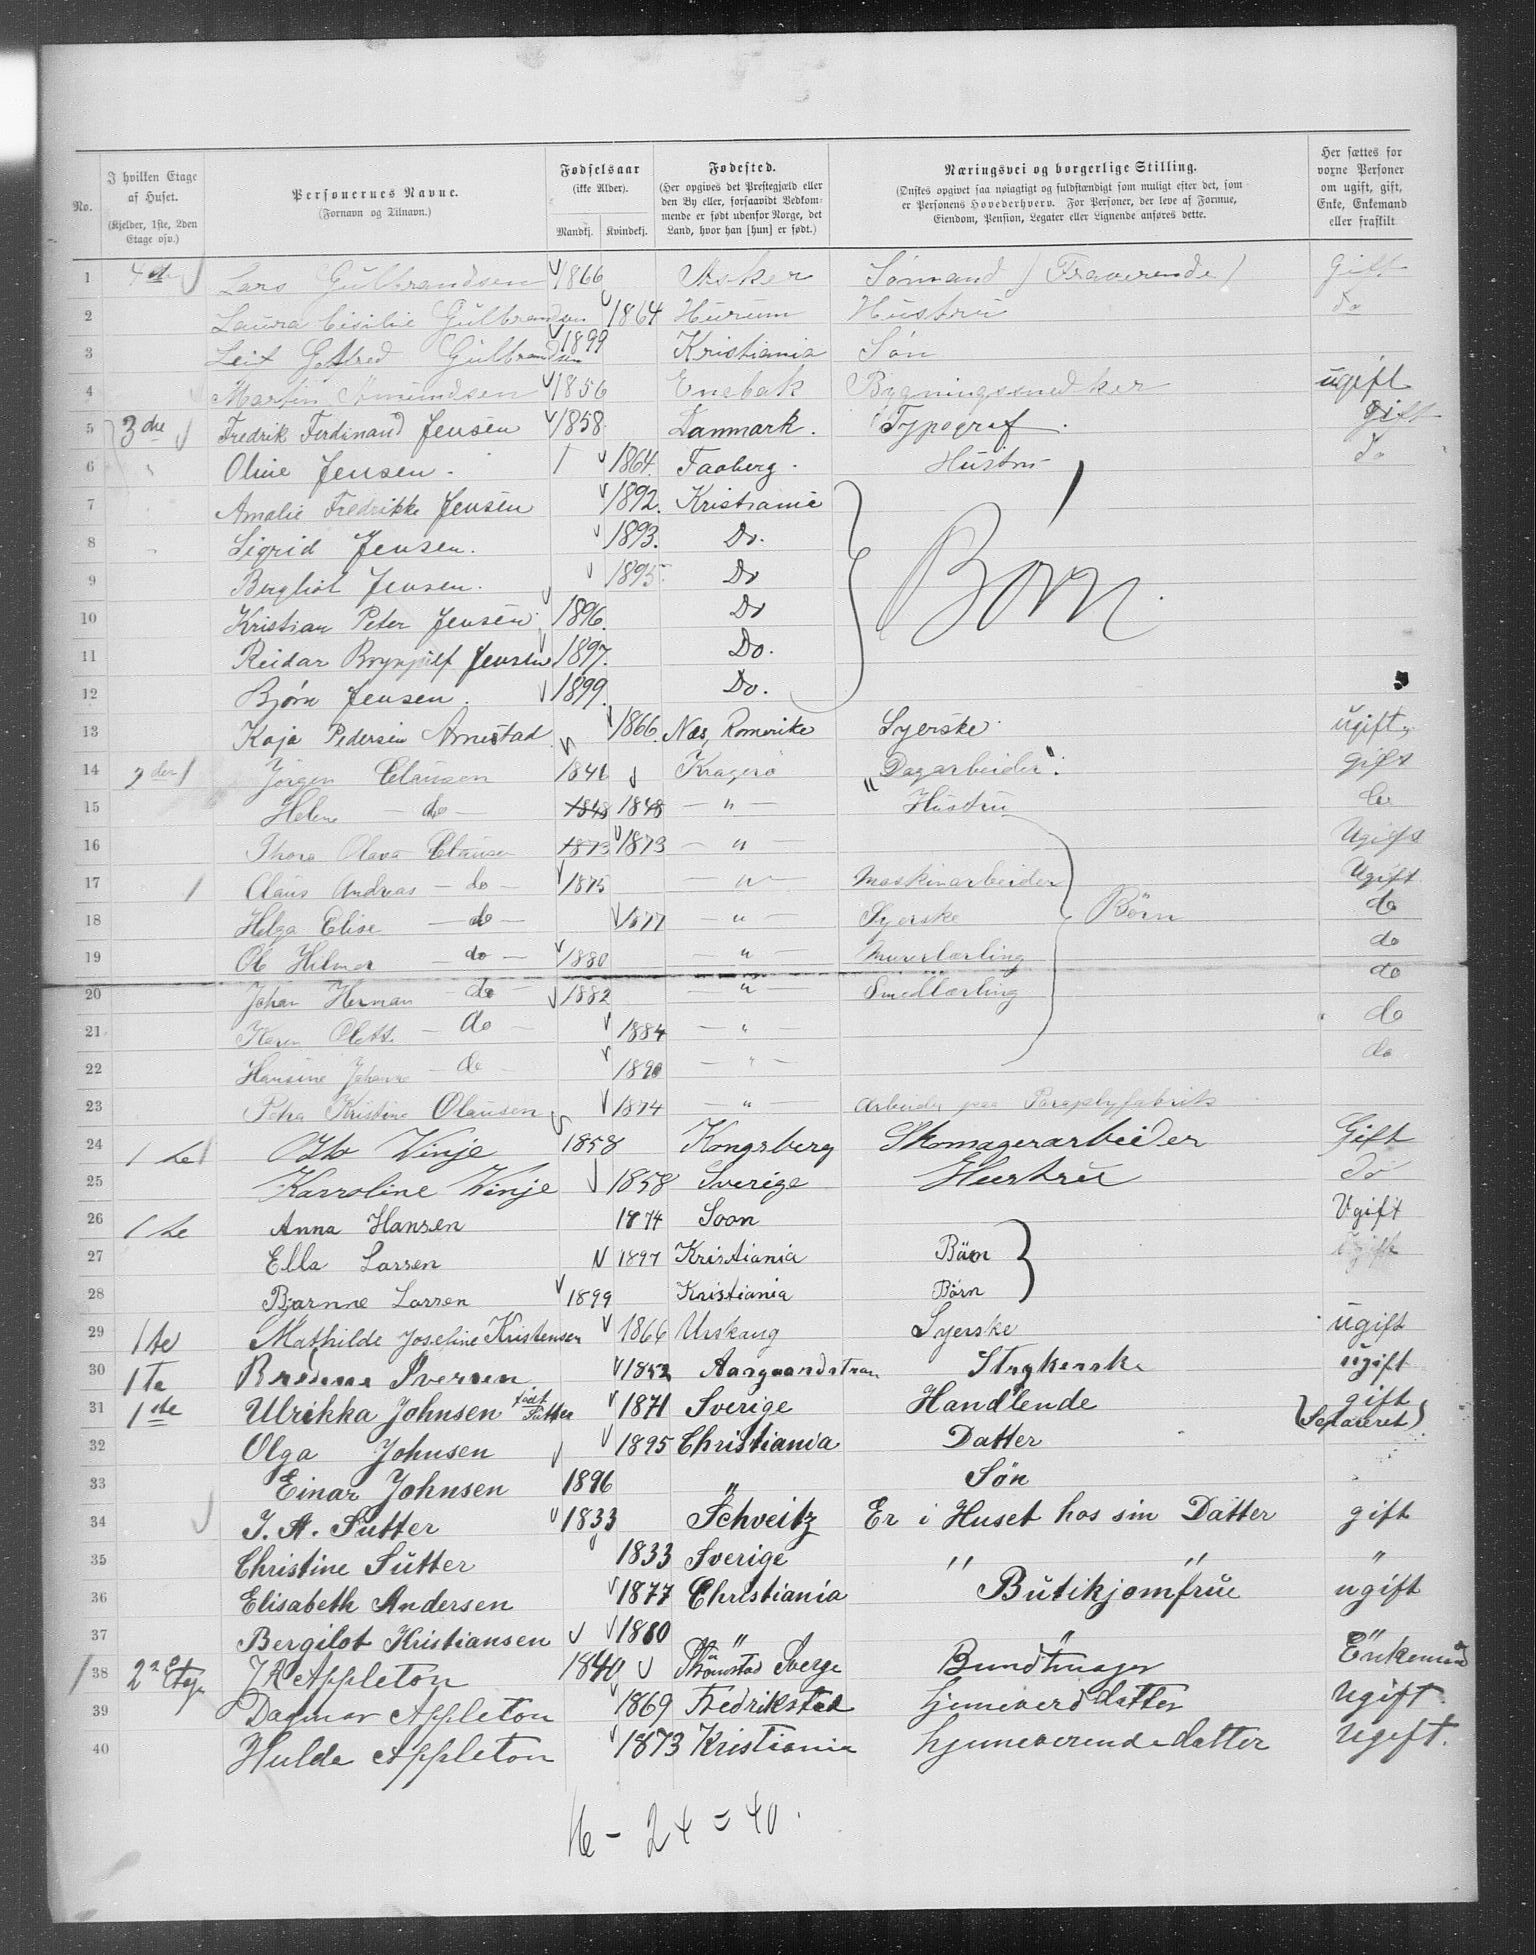 No. | I hvilken Etage af Huset. (Kjelder, 1ste, 2den Etage osv.) | Personernes Navne. (Fornavn og Tilnavn.) | Fødselsaar (ikke Alder). Mandkj. Kvindekj. | Fødested. (Her opgives det Prestegjæld eller den By eller, forsaavidt Bedkommende er født udenfor Norge, det Land, hvor han [hun] er født.) | Næringsvei og borgerlige Stilling. (Ønskes opgivet saa nøiagtigt og fuldstændigt som muligt efter det, som er Personens Hovederhverv. For Personer, der leve af Formue, Eiendom, Pension, Legater eller Lignende anføres dette. | Her sættes for voxne Personer om ugift, gift, Enke, Enkemand eller fraskilt
1 4de Lars Gulbrandsen 1866 Asker Sømand (Fraverende) Gift
2 Laura Cisilie Gülbrandsen 1864 Hurum Hüstrü do
3 Leif Gülbrandsen 1899 Kristiania Søn
4 Martin Amundsen 1856 Enebak Bygningssnedker ugift
5 3die Fredrik Ferdinand Jensen 1858. Danmark. Typograf. Gift
6 Oline Jensen. 1864. Faaberg. Hüstru do
7 Amalie Fredrikke Jensen 1892. Kristiania
8 Sigrid Jensen. 1893. Do. Börn.
9 Bergliot Jensen. 1895. Do
10 Kristian Peter Jensen. 1896. Do
11 Reidar Brynjulf Jensen 1897. Do.
12 Bjørn Jensen. 1899. Do.
13 Kaja Pedersen Arnestad 1866. Nes, Romerike Syerske. ugift
14 2den Jörgen Clausen 1841 Kragerö "Dagarbeider". gift
15 Helene — do — 1848 1848 — " — Hüstrü do
16 Thora Olava Clausen 1873 1873 — " — Ugift
17 Claus Andreas — do — 1875 — " — Maskinarbeider Ugift
18 Helga Elise — do — 1877 — " — Syerske Börn do
19 Ole Hilmar — do — 1880 — " — Murerlærling do
20 Johan Herman — do — 1882 — " — Smedlærling do
21 Karen — do — 1884 — " do
22 Hansine Johanne — do — 1890 — " — do
23 Petra Kristine Olaüsen 1874 — " — Arbeider paa Paraplyfabrik
24 1ste Otto Winje 1858 Kongsberg Skomagerarbeider Gift
25 Karoline Winje 1858 Sverige Hustrü do
26 1ste Anna Hansen 1874 Soon Ugift
27 Ella Larsen 1897 Kristiania Börn
28 Bjarnne Larsen 1899 Kristiania Børn
29 1ste Mathilde Josefine Kristensen 1866 Urskaug Syerske ugift
30 1ste Iversen 1852 Aasgaardstran Strykerske ugift
31 1ste Ulrikka Johnsen född Sutter 1871 Sverige Handlende gift (Separeret)
32 Olga Johnsen 1895 Christiania Datter
33 Einar Johnsen 1896 " Søn
34 J. A. Sutter 1833 Schveitz Er i Huset hos sin Datter gift
35 Christine Sütter 1833 Sverige " " "
36 Elisabeth Andersen 1877 Christiania Butikjomfrue ugift
37 Bergilot Kristiansen 1880 " " "
38 2n Etage JA Appleton 1840 Strømstad Sverge Bundtmager Enkemand
39 Dagmar Appleton 1869 Fredrikstad hjemeverd datter Ugift
40 Hulda Appleton 1873 Kristiania hjemmeverende datter Ugift.
16 – 24 = 40.